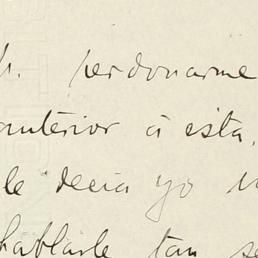 perdonarme
anterior á esta.
le decia yo
hablarle tan